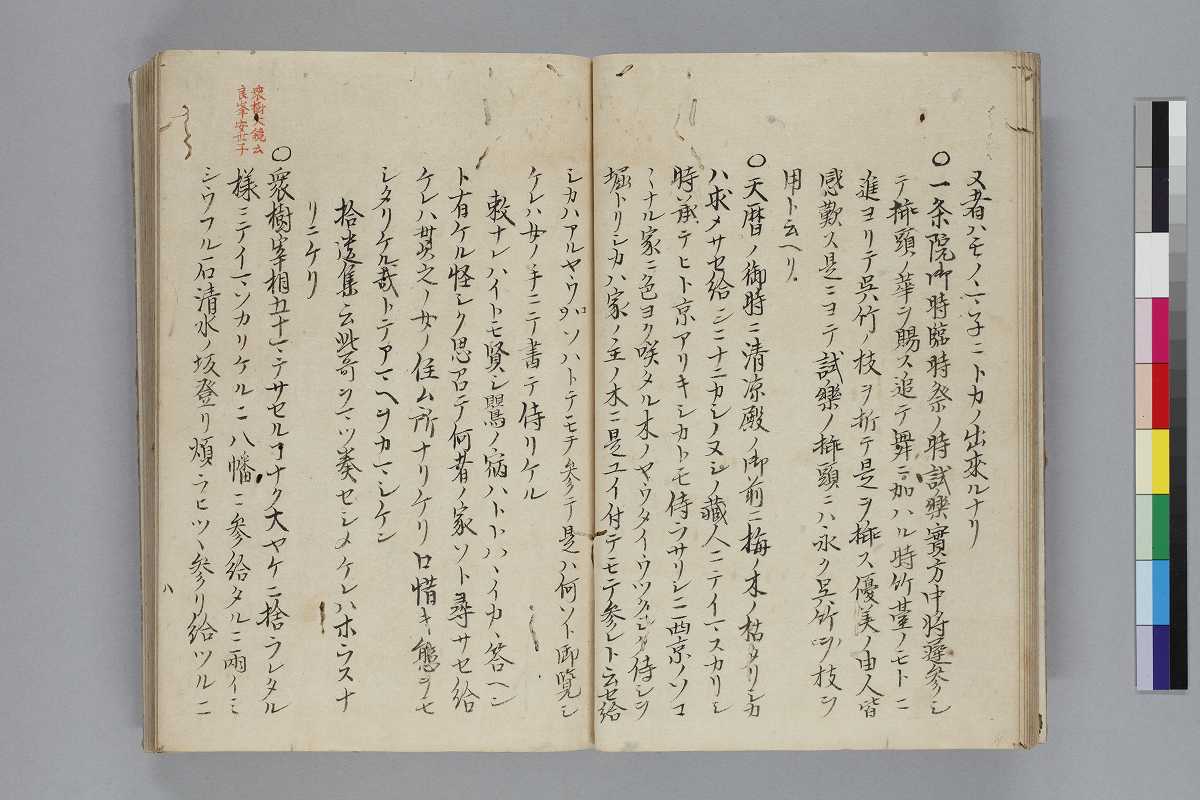 又者ハモノヽマシ子ニトカノ出來ルナリ
〇一条院御時臨時祭ノ時試樂實方中將遲參シ
テ挿頭ノ華ヲ賜ス追テ舞ニ加ハル時竹臺ノモトニ
進ヨリテ呉竹ノ枝ヲ折テ是ヲ挿ス優美ノ由人皆
感歎ス是ニヨテ試樂ノ挿頭ニハ永ク呉竹ノ枝ヲ
用ト云ヘリ
〇天暦ノ御時ニ清凉殿ノ御前ニ梅ノ木ノ枯タリシカ
ハ求メサセ給シニナニカシノヌシノ藏人ニテイマスカリシ
時承テヒト京アリキシカトモ侍ラサリシニ西京ノソコ
〻ナル家ニ色ヨク咲タル木ノヤウタイウツクシク侍シヲ
堀トリシカハ家ノ主ノ木ニ是ユイ付テモテ參レト云セ給
シカハアルヤウコソハトテモテ參テ是ハ何ソト御覽シ
ケレハ女ノ手ニテ書テ侍リケル
敕ナレハイトモ賢シ鸎ノ宿ハトトハヽイカヽ答ヘン
ト有ケル怪シク思召テ何者ノ家ソト尋サセ給
ケレハ貫之ノ女ノ住ム所ナリケリ口惜キ態ヲモ
シタリケル哉トテアマヘヲカマシケン
拾遺集云此哥ヲマツ奏セシメケレハホラスナ
リニケリ
衆樹大鏡云
良峯安世子
〇衆樹宰相五十マテサセルコナク大ヤケニ捨ラレタル
樣ニテイマシカリケルニ八幡ニ參給タルニ雨イミ
シウフル石清水ノ坂登リ煩ラヒツヽ參リ給ツルニ
八